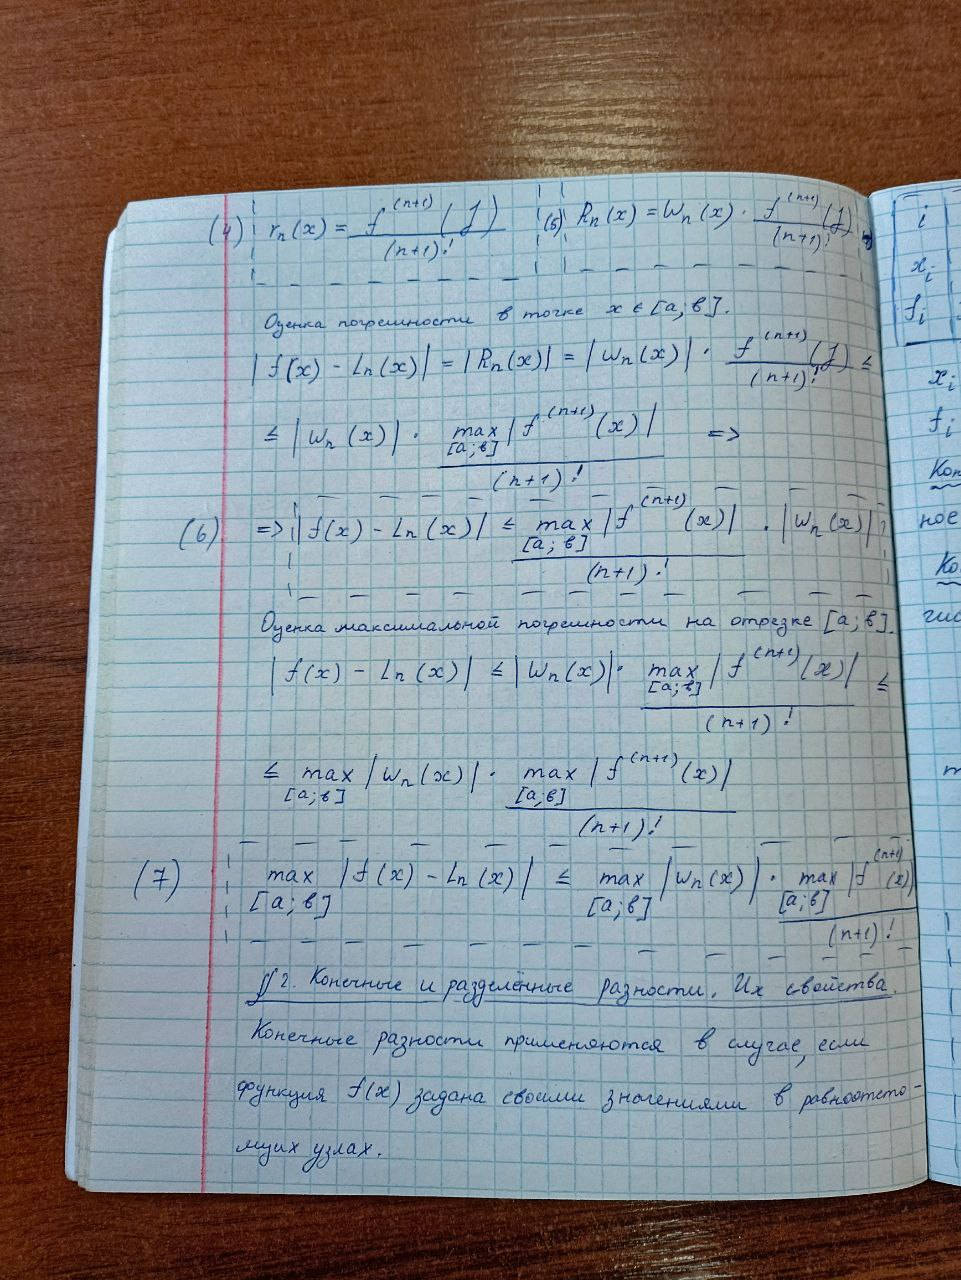 (4) rₙ(x) = f⁽ⁿ⁺¹⁾(ξ) / (n+1)! (5) Rₙ(x) = Wₙ(x) · f⁽ⁿ⁺¹⁾(ξ) / (n+1)!
Оценка погрешности в точке x ∈ [a; в].
|f(x) − Lₙ(x)| = |Rₙ(x)| = |Wₙ(x)| · f⁽ⁿ⁺¹⁾(ξ) / (n+1)! ≤
≤ |Wₙ(x)| · max [a; в] |f⁽ⁿ⁺¹⁾(x)| / (n+1)! =>
(6) => |f(x) − Lₙ(x)| ≤ max [a; в] |f⁽ⁿ⁺¹⁾(x)| / (n+1)! · |Wₙ(x)|
Оценка максимальной погрешности на отрезке [a; в].
|f(x) − Lₙ(x)| ≤ |Wₙ(x)| · max [a; в] |f⁽ⁿ⁺¹⁾(x)| / (n+1)! ≤
≤ max [a; в] |Wₙ(x)| · max [a; в] |f⁽ⁿ⁺¹⁾(x)| / (n+1)!
(7) max [a; в] |f(x) − Lₙ(x)| ≤ max [a; в] |Wₙ(x)| · max [a; в] |f⁽ⁿ⁺¹⁾(x)| / (n+1)!
§ 2. Конечные и разделённые разности. Их свойства.
Конечные разности применяются в случае, если
функция f(x) задана своими значениями в равноотсто-
ящих узлах.
i
xᵢ
fᵢ
xᵢ
fᵢ
Кон
ное
Ко
чис